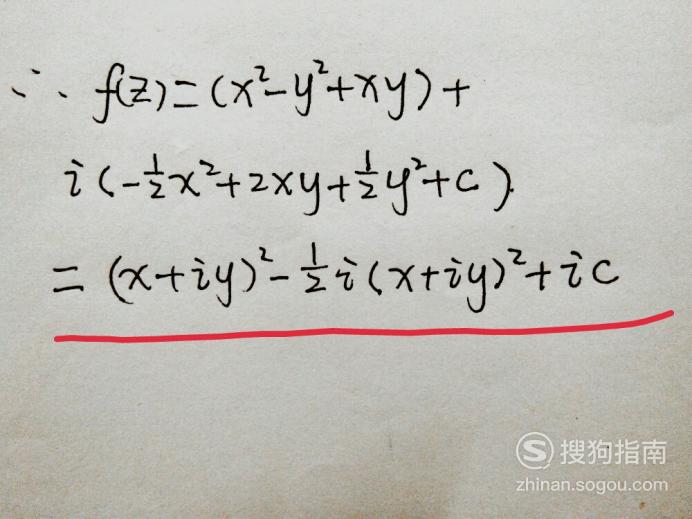 ∴ f(z)=(x²-y²+xy)+
i(-½x²+2xy+½y²+c).
=(x+iy)²-½i(x+iy)²+ic
S 搜狗指南
zhinan.sogou.com